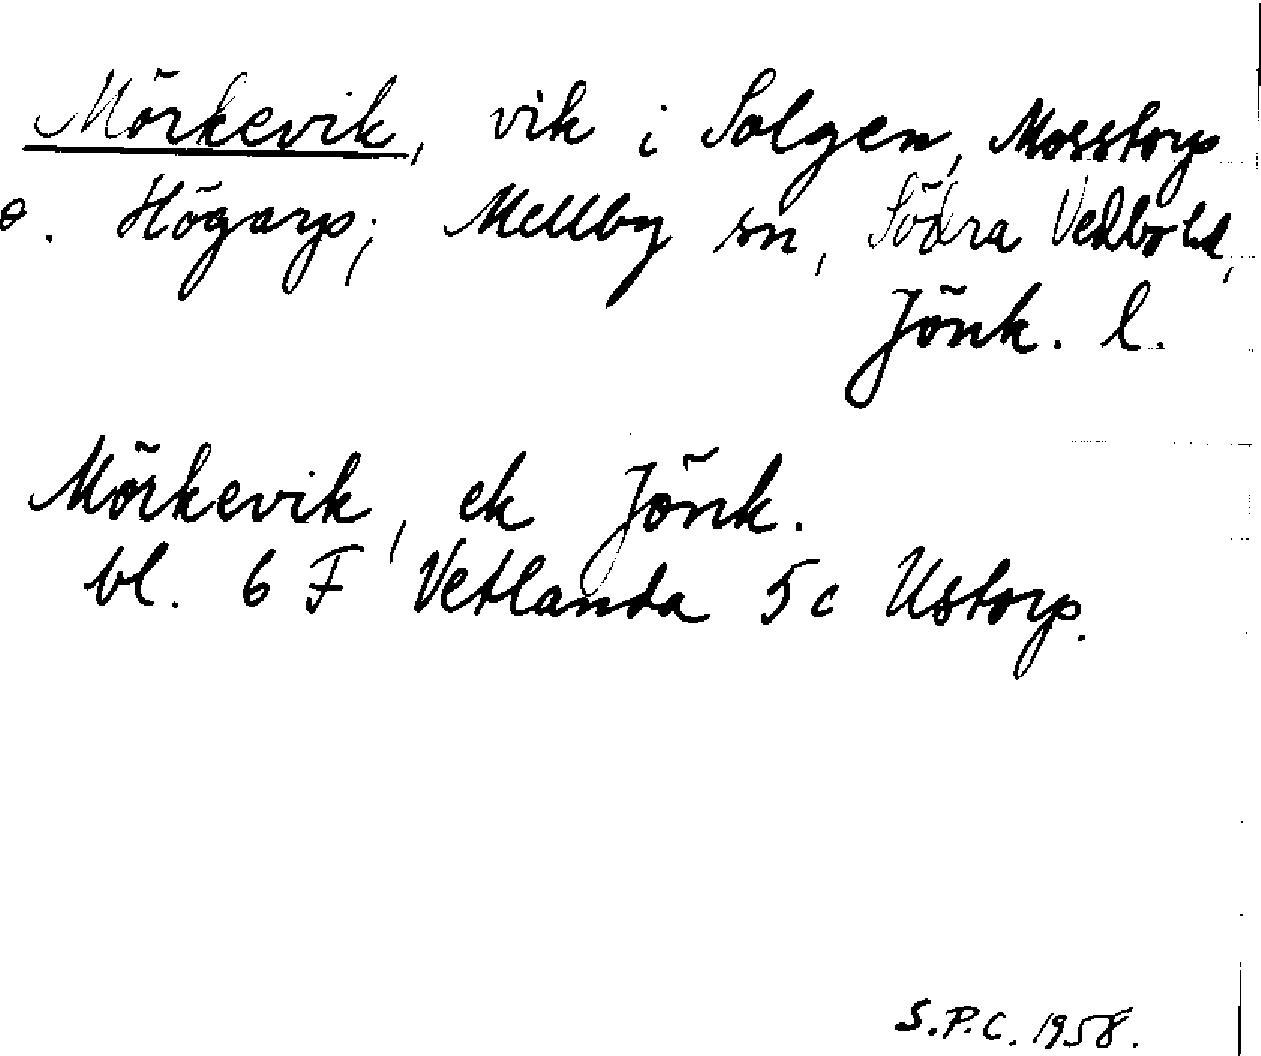 Mörkevik, vik i Solgen, Mosstorp
o. Högarp; Mellby sn, Södra Vedbo hd,
Jönk. l.
Mörkevik, ek Jönk.
bl. 6 F Vetlanda 5c Ustorp.
S.P.C. 1958.